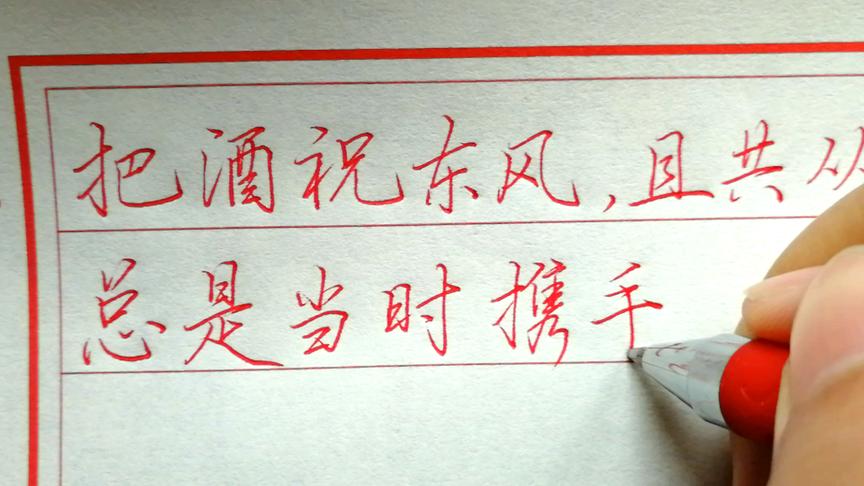 把酒祝东风,且共从
总是当时携手